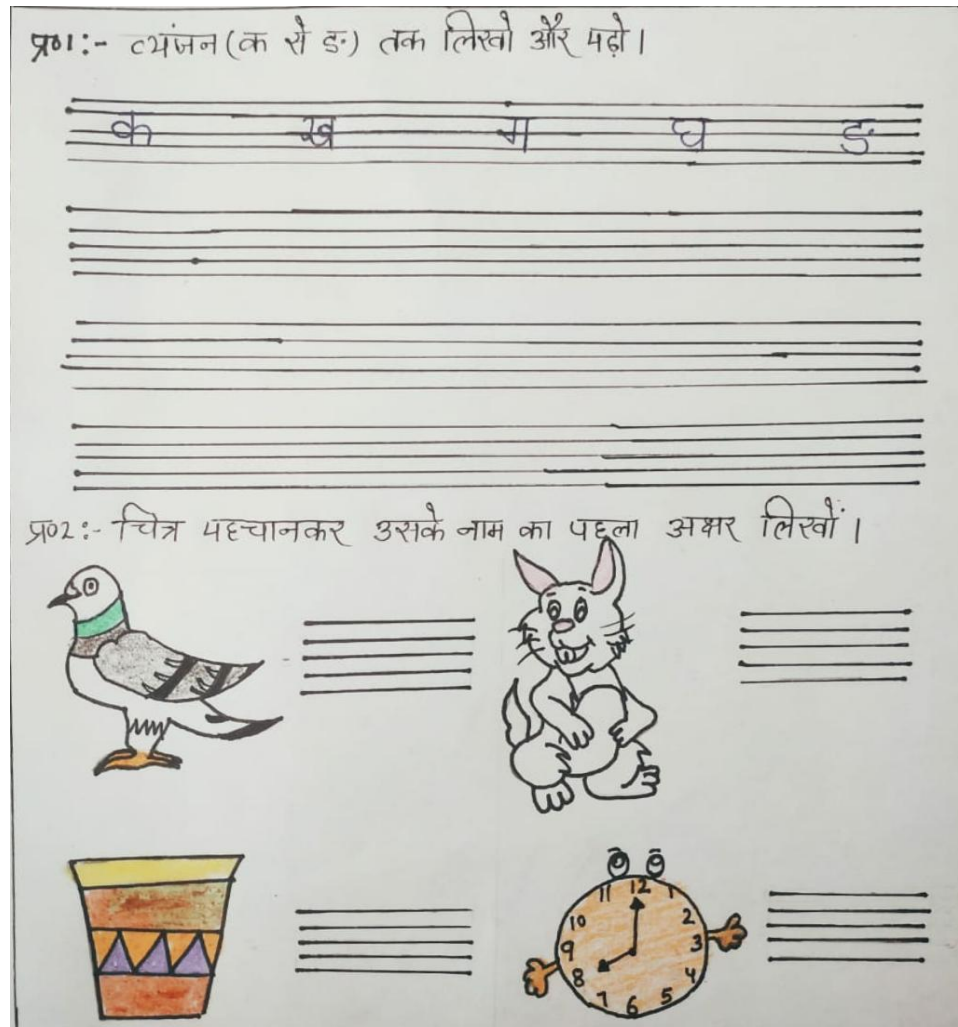 प्र०1:- व्यंजन (क से ङ) तक लिखो और पढ़ो।
क ख ग घ ङ
प्र०2:- चित्र पहचानकर उसके नाम का पहला अक्षर लिखों।
11 12 1
10 2
9 3
8 4
7 6 5